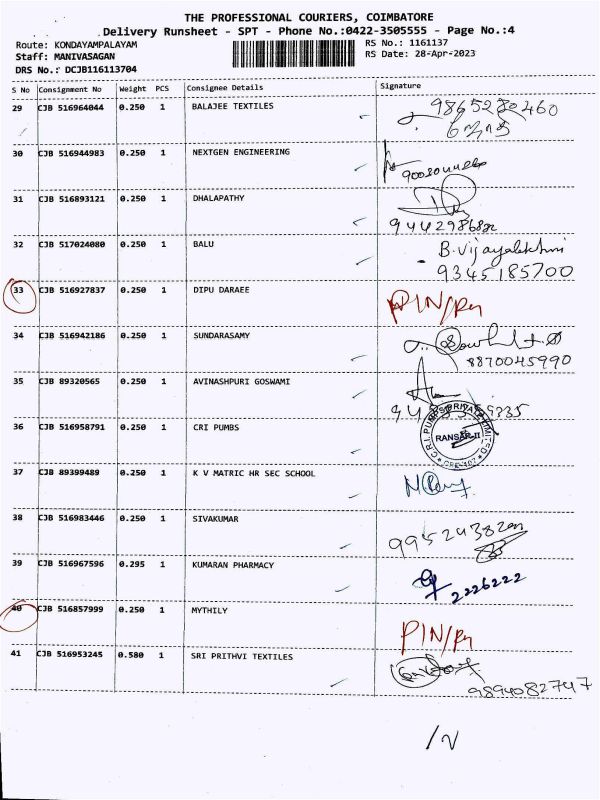 THE PROFESSIONAL COURIERS, COIMBATORE
Delivery Runsheet - SPT - Phone No.:0422-3505555 - Page No.:4
Route: KONDAYAMPALAYAM
RS No.: 1161137
Staff: MANIVASAGAN
RS Date: 28-Apr-2023
DRS No.: DCJB116113704
S No Consignment No Weight PCS Consignee Details Signature
29 CJB 516964044 0.250 1 BALAJEE TEXTILES 9865280460
30 CJB 516944983 0.250 1 NEXTGEN ENGINEERING
31 CJB 516893121 0.250 1 DHALAPATHY
32 CJB 517024080 0.250 1 BALU B.Vijayalekhmi
9345185700
33 CJB 516927837 0.250 1 DIPU DARAEE PIN/Ry
34 CJB 516942186 0.250 1 SUNDARASAMY
8870045990
35 CJB 89320565 0.250 1 AVINASHPURI GOSWAMI
36 CJB 516958791 0.250 1 CRI PUMBS
C.R.I. PUMPS PRIVATE LIMITED
RANSAR-II
37 CJB 89399489 0.250 1 K V MATRIC HR SEC SCHOOL
38 CJB 516983446 0.250 1 SIVAKUMAR
39 CJB 516967596 0.295 1 KUMARAN PHARMACY
2226222
40 CJB 516857999 0.250 1 MYTHILY PIN/Ry
41 CJB 516953245 0.580 1 SRI PRITHVI TEXTILES
9894082747